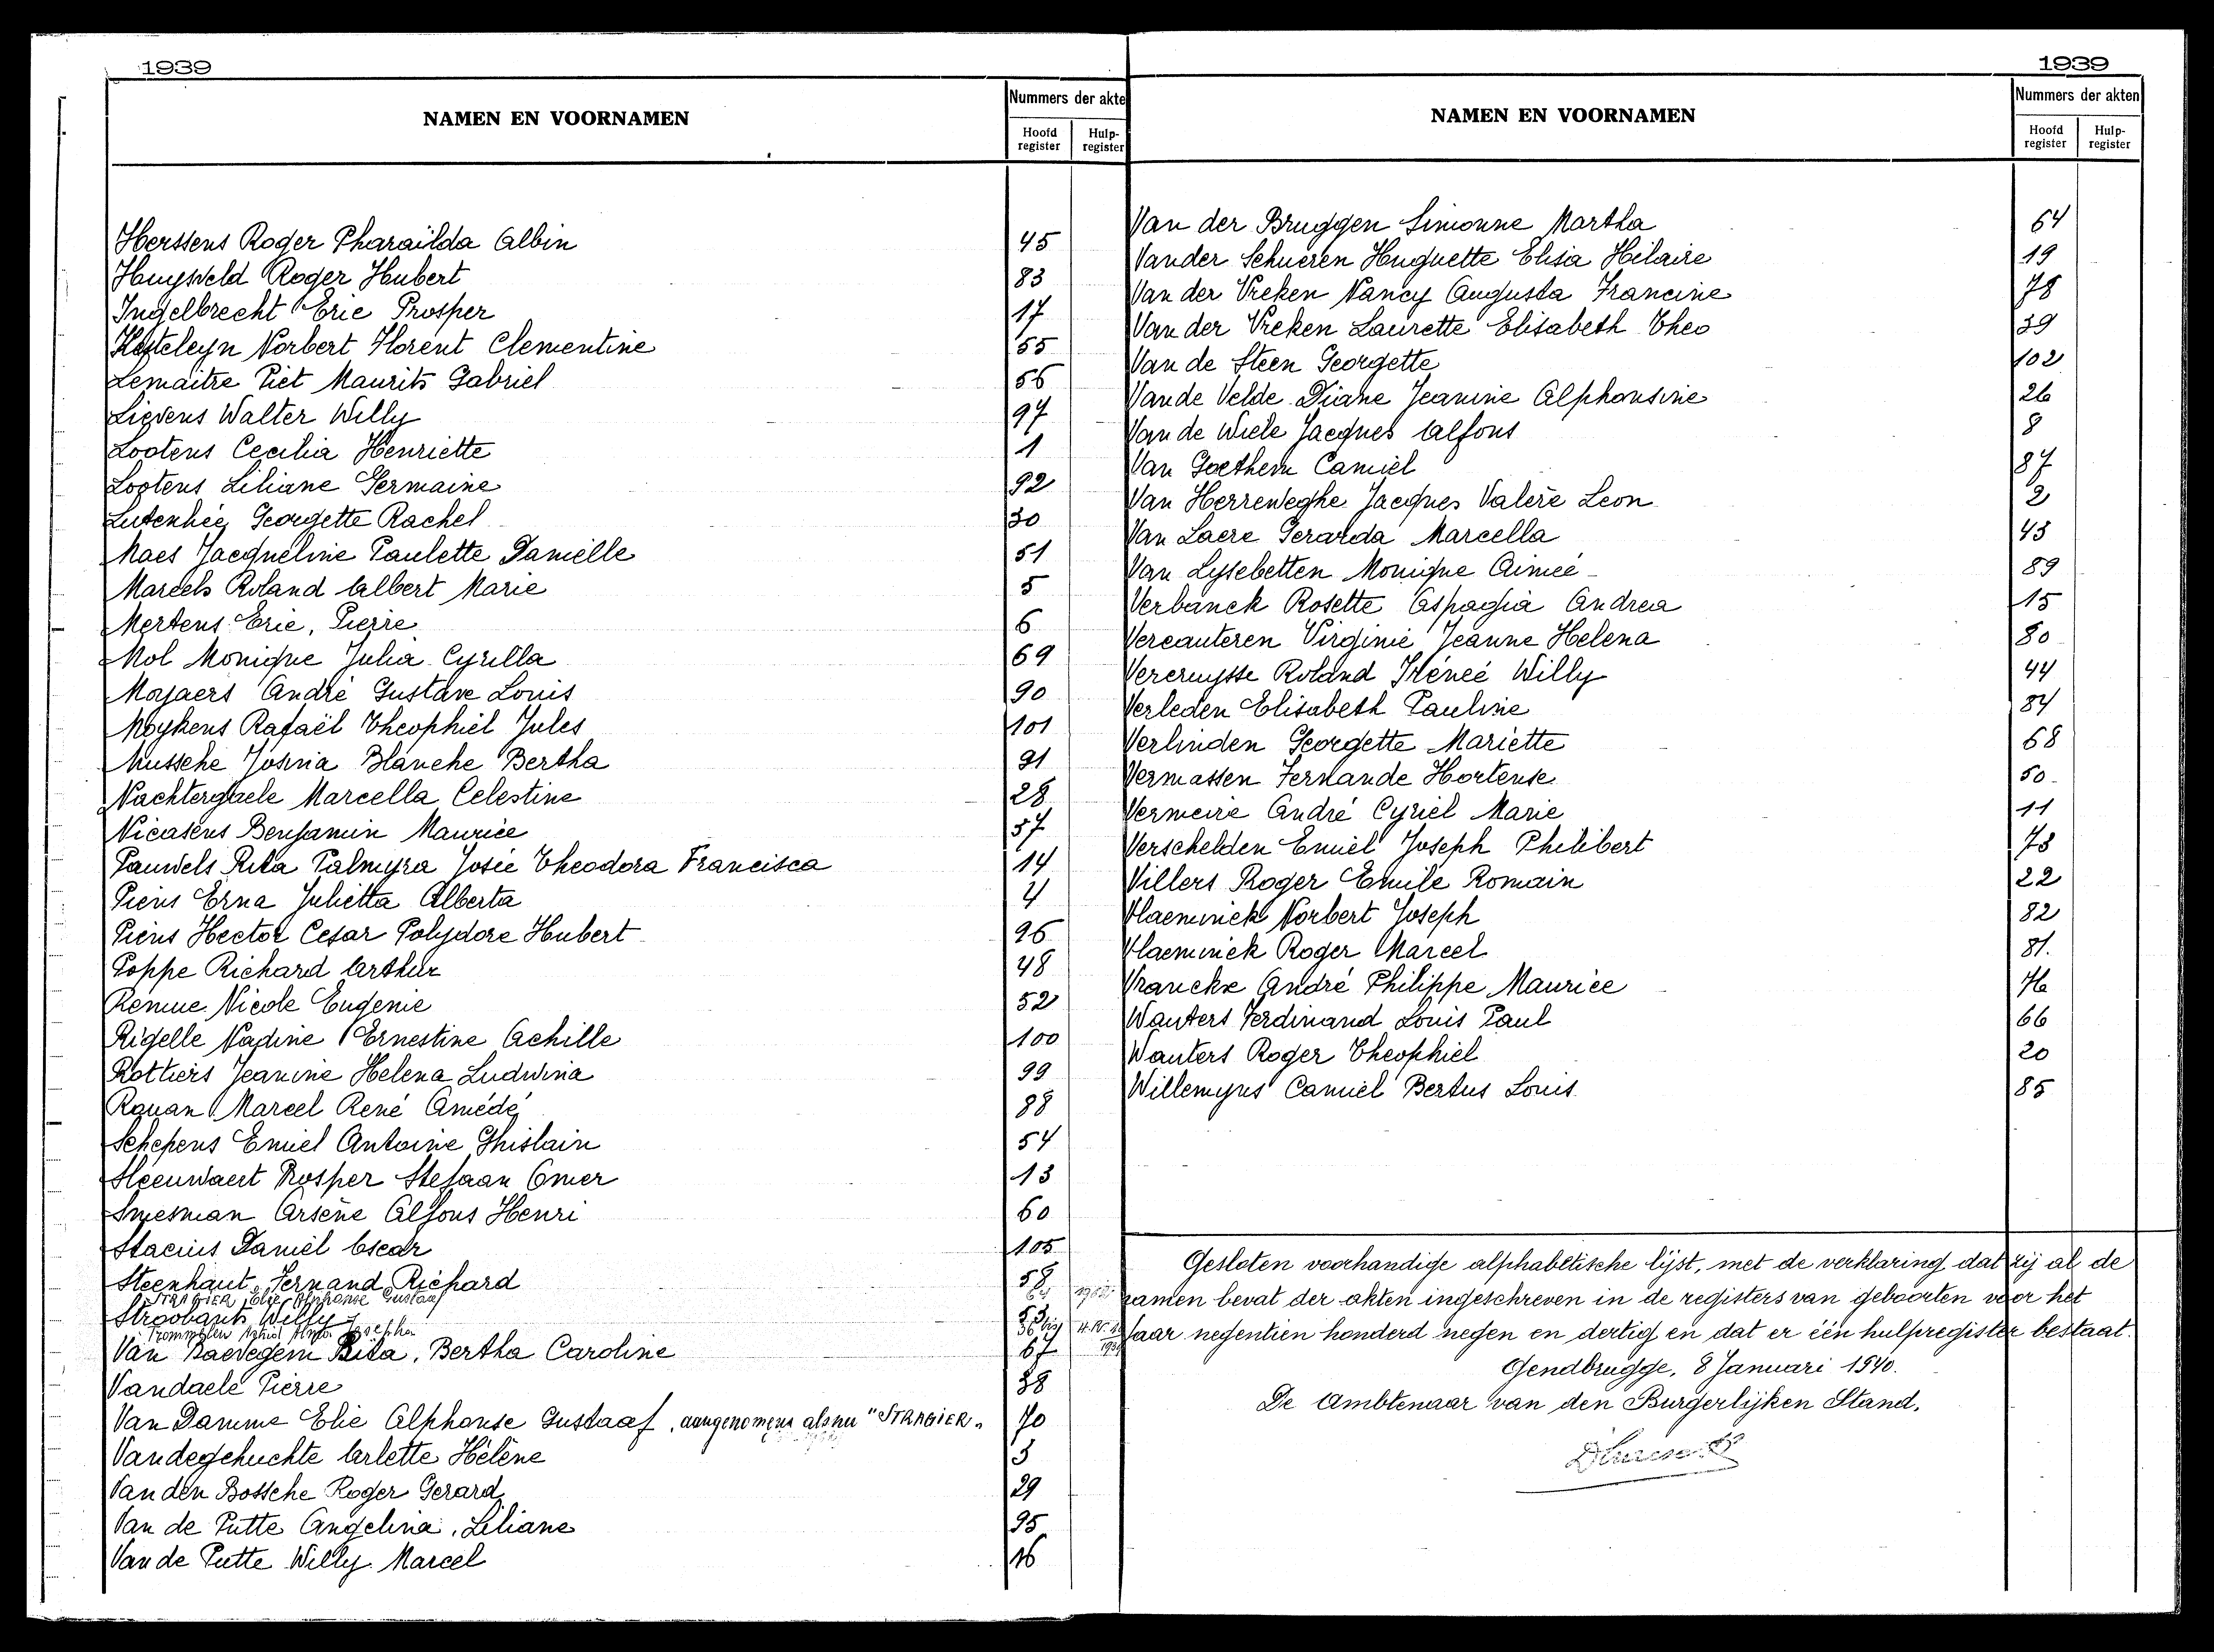 1939
NAMEN EN VOORNAMEN
Nummers der akte
Hoofd register
Hulp-register
Herssens Roger Pharaïlda Albin 45
Huysveld Roger Hubert 83
Ingelbrecht Eric Prosper 17
Kasteleyn Norbert Florent Clementine 55
Lemaitre Piet Maurits Gabriel 56
Lievens Walter Willy 97
Lootens Cecilia Henriette 1
Lootens Liliane Germaine 92
Lutenhéé Georgette Rachel 30
Maes Jacqueline Paulette Danielle 51
Marcels Roland Albert Marie 5
Mertens Eric, Pierre 6
Mol Monique Julia Cyrilla 69
Moyaers André Gustave Louis 90
Moykens Rafaël Theophiel Jules 101
Mussche Josina Blanche Bertha 91
Nachtergaele Marcella Celestine 28
Nicasens Benjamin Maurice 57
Pauwels Rita Palmyra Josée Theodora Francisca 14
Piens Erna Julietta Alberta 4
Piens Hector Cesar Polydore Hubert 96
Poppe Richard Arthur 48
Remue Nicole Eugenie 52
Rigelle Nadine Ernestine Achille 100
Rottiers Jeanine Helena Ludwina 99
Rouan Marcel René Amédé 88
Schepens Emiel Antoine Ghislain 54
Sleeuwaert Prosper Stefaan Omer 13
Smesman Arsène Alfons Henri 60
Stacius Daniël Oscar 105
Steenhaut Fernand Richard 58
STRAGIER Elie Alphonse Gustaaf
Stroobants Willy 53
Josepha
Van Baevegem Rita, Bertha Caroline 67
Vandaele Pierre 38
Van Damme Elie Alphonse Gustaaf, aangenomen als nu "STRAGIER" 70
Vandegehuchte Arlette Hélène 3
Van den Bossche Roger Gerard 29
Van de Putte Angelina, Liliane 95
Van de Putte Willy Marcel 16
1939
NAMEN EN VOORNAMEN
Nummers der akten
Hoofd register
Hulp-register
Van der Bruggen Simonne Martha 64
Vander Schueren Huguette Elisa Hilaire 19
Van der Vreken Nancy Augusta Francine 78
Van der Vreken Laurette Elisabeth Theo 39
Van de Steen Georgette 102
Van de Velde Diane Jeanine Alphonsine 26
Van de Wiele Jacques Alfons 8
Van Goethem Camiel 87
Van Herreweghe Jacques Valère Leon 2
Van Laere Gerarda Marcella 43
Van Lysebetten Monique Aimeé 89
Verbanck Rosette Aspasia Andrea 15
Vercauteren Virginie Jeanne Helena 80
Vercruysse Roland Iréneé Willy 44
Verleden Elisabeth Pauline 84
Verlinden Georgette Mariette 68
Vermassen Fernande Hortense 50
Vermeire André Cyriel Marie 11
Verschelden Emiel Joseph Philibert 73
Villers Roger Emile Romain 22
Vlaeminck Norbert Joseph 82
Vlaeminck Roger Marcel 81.
Vranckx André Philippe Maurice 76
Wauters Ferdinand Louis Paul 66
Wauters Roger Theophiel 20
Willemyns Camiel Bertus Louis 85
Gesloten voorhandige alphabetische lijst, met de verklaring dat zij al de
namen bevat der akten ingeschreven in de registers van geboorten voor het
jaar negentien honderd negen en dertig en dat er één hulpregister bestaat.
Gendbrugge, 8 Januari 1940.
De Ambtenaar van den Burgerlijken Stand,